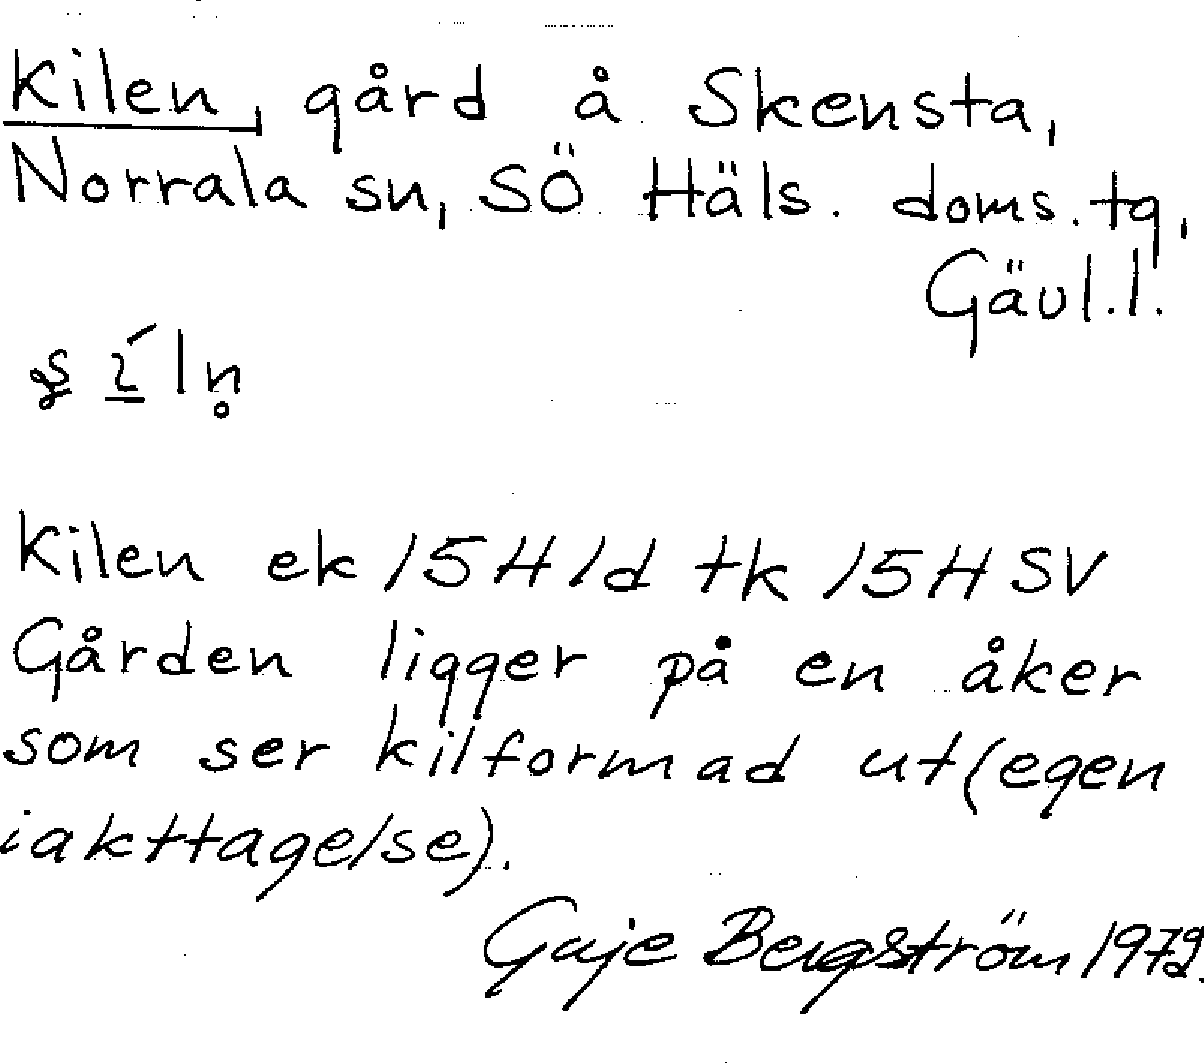 Kilen, gård å Skensta,
Norrala sn, SÖ Häls. doms. tg,
Gävl.l.
Kilen ek 15H 1d tk 15H SV
Gården ligger på en åker
som ser kilformad ut (egen
iakttagelse).
Bergström 1972